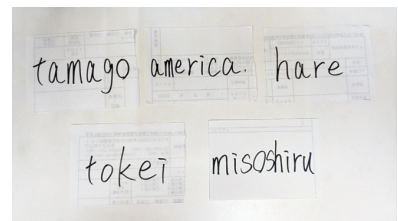 tamago america. hare
tokei misoshiru